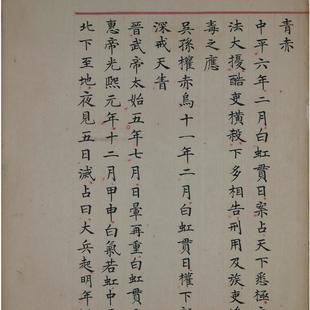 青赤
中平六年二月白虹貫日案占天下悉極
法大擾酷吏橫殺下多相告刑用及族吏
毒之應
吳孫權赤烏十一年二月白虹貫日權下
深戒天青
晉武帝太始五年七月日暈再重白虹貫
惠帝光熙元年十二月甲申白氣若虹中
北下至地夜見五日滅占曰大兵起明年